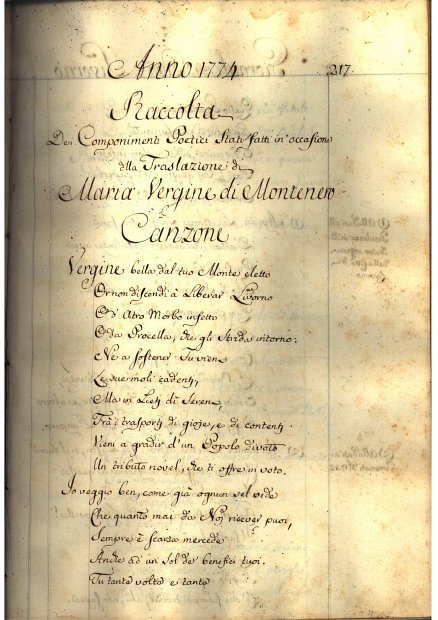 Anno 1774
217.
Raccolta
Dei Componimenti Poetici Stati fatti in occasione
della Traslazione di
Maria Vergine di Montenero
Canzone
Vergine bella dal tuo Monte eletto
Or non discendi à Liberar Livorno
D' Atro Morbo infetto
O da Procella, che gli Strida intorno;
Ne a sostener
Le
Ma in Lieti dì Sereni,
Trà i trasporti di gioje, e di contenti
Vieni a gradir d'un Popolo divoto
Un tributo novel, che ti offre in voto.
Io veggio ben, come già ognun sel vide
Che quanto mai da Noj ricever puoi,
Sempre è scarsa mercede
Anche ad un sol de' benefici tuoi.
Tu tante volte e tante